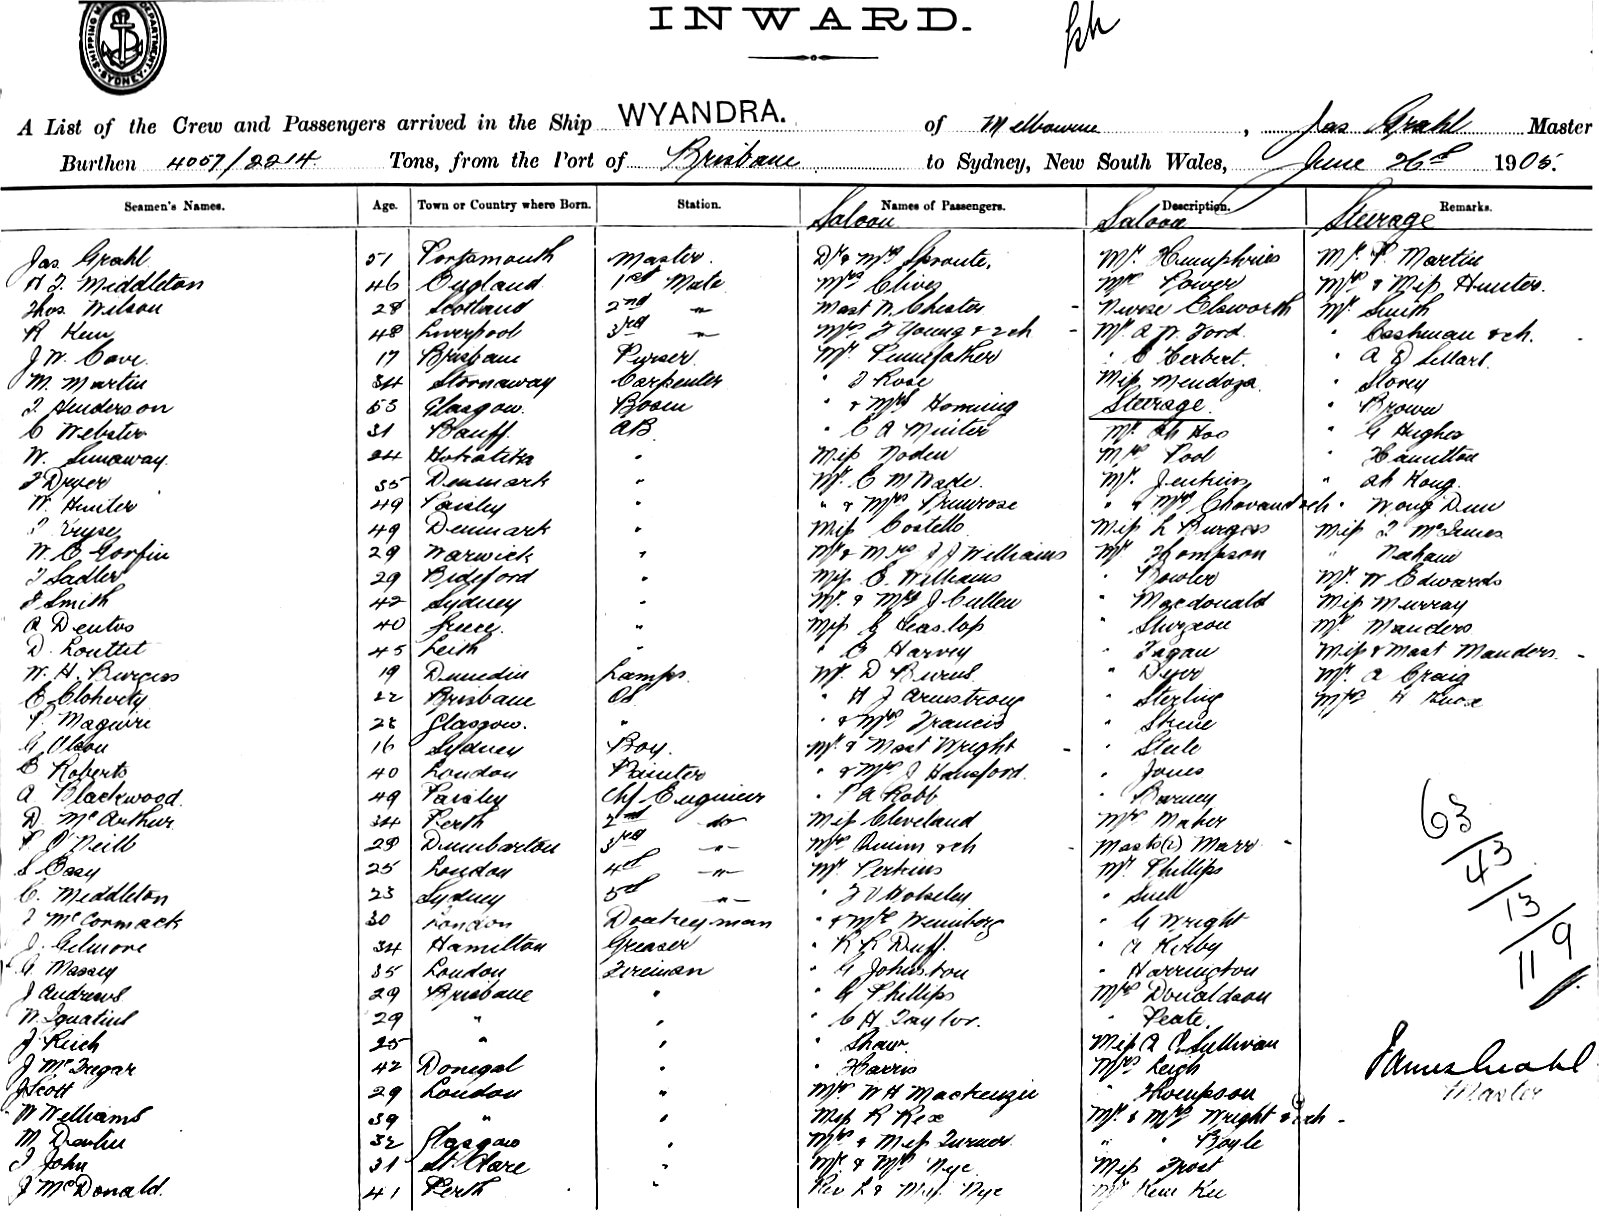 SHIPPING MASTER'S DEPARTMENT · SYDNEY ·
INWARD.
A List of the Crew and Passengers arrived in the Ship WYANDRA. of Melbourne, Jas Grahl Master
Burthen 4057/2214 Tons, from the Port of Brisbane to Sydney, New South Wales, June 26th 1905.
Seamen's Names. Age. Town or Country where Born. Station. Names of Passengers. Description. Remarks.
Saloon Saloon Steerage
Jas Grahl 51 Portsmouth Master. Dr & Mrs Sproule. Mr. Humphries Mr. P. Martin
Middleton 46 England 1st Mate Mrs Clives Mrs Power Mrs & Miss Hunter.
Thos Wilson 28 Scotland 2nd " Mast N. Chester - Nurse Elsworth Mr. Smith
R 48 Liverpool 3rd " Mrs Young & 2ch - Mr. A. W. Ford. " & ch.
J W. Cave. 17 Brisbane Purser. Mr. Pennefather " C Herbert. " A
M. Martin 34 Stornaway Carpenter " Rose Miss Mendoza. " Storey
Henderson 53 Glasgow. Bosun " & Mrs Horning Steerage. " Brown
C Webster 31 Banff. AB. " C A Minter Mr. Ah Hoo " G Hughes
W. 24 Hokatika " Miss Noden Mrs Pool " Hamilton
Dryer 35 Denmark " Mr. C M Wade. Mr. Jenkins " Ah Kong.
W. Hunter 49 Paisley " " & Mrs Primrose " & Mrs & ch " Wong Dun
49 Denmark " Miss Costello Miss L Burgess Miss McInnes
W. C 29 Warwick " Mr & Mrs J J Williams Mr Thompson "
Sadler 29 Bideford " Miss C. Williams " Bowler Mr. W Edwards
Smith 42 Sydney " Mr. & Mrs J Cullen " Macdonald Miss Murray
A Dentos 40 " Miss G Heaslop " Sturgeon Mr. Manders
D. Louttit 45 Leith " " C Harvey " Fagan Miss & Mast Manders. -
W. H. Burgess 19 Dunedin Lamps. Mr. D Burns " Dyer Mr. A Craig
C Cloherty 22 Brisbane OS " H J Armstrong " Sterling Mrs H Knox
P. Maguire 28 Glasgow. " " & Mrs Francis "
G Olson 16 Sydney Boy. Mr. & Mast Wright - " Steele
C Roberts 40 London Painter " & Mrs J Hansford. " Jones
A Blackwood. 49 Paisley Chf Engineer " P A Robb " Barney
D. McArthur 34 Perth 2nd do Miss Cleveland Mrs Maher
P O'Neill 28 Dumbarton 3rd " Mrs Quinn & ch - Mast(s) Marr -
S Casy 25 London 4th " Mr. Perkins Mr Phillips
C. Middleton 23 Sydney 5th " " Wolseley " Snell
McCormack 30 London Donkeyman " & Mrs Weinberg " G Wright
J. Gilmore 34 Hamilton Greaser " R R Duff. " A Kerby
G Massey 35 London Fireman " G Johnston " Harrington
J Andrews 29 Brisbane " " G Phillips Mrs Donaldson
W. Ignatius 29 " " " C H Taylor. " Peate.
J 25 " " " Shaw. Miss A O'Sullivan
J McGregar 42 Donegal " " Harris Mrs Leigh
J Scott 29 London " Mrs W H Mackenzie " Thompson
W Williams 39 " " Miss R Rex Mr. & Mrs Wright & ch -
M Devlin 32 Glasgow " Mrs & Miss Turner. " " Boyle
John 31 St. Clare " Mr. & Mrs Nye Miss Frost
J McDonald. 41 Perth " Rev L & Miss Nye Mr Kum Kee
63/43/13/119
James Grahl
Master